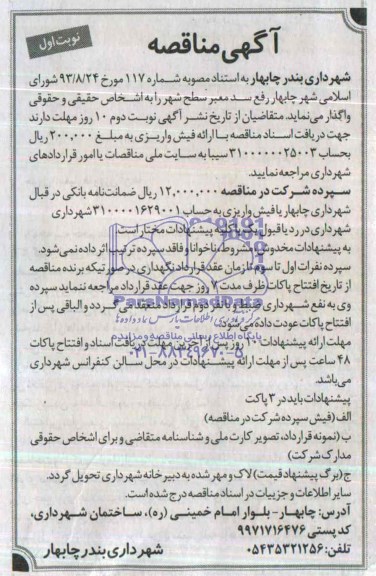 نوبت اول
آگهی مناقصه
شهرداری بندر چابهار به استناد مصوبه شماره ۱۱۷ مورخ ۹۳/۸/۲۴ شورای
اسلامی شهر چابهار رفع سد معبر سطح شهر را به اشخاص حقیقی و حقوقی
واگذار می نماید. متقاضیان از تاریخ نشر آگهی نوبت دوم ۱۰ روز مهلت دارند
جهت دریافت اسناد مناقصه با ارائه فیش واریزی به مبلغ ۲۰۰,۰۰۰ ریال
بحساب ۳۱۰۰۰۰۰۰۲۵۰۰۳ سیبا به سایت ملی مناقصات یا امور قراردادهای
شهرداری مراجعه نمایید.
سپرده شرکت در مناقصه ۱۲,۰۰۰,۰۰۰ ریال ضمانت نامه بانکی در قبال
شهرداری چابهار یا فیش واریزی به حساب ۳۱۰۰۰۰۱۶۲۹۰۰۱ شهرداری
شهرداری در رد یا قبول یک یا کلیه پیشنهادات مختار است.
به پیشنهادات مخدوش، مشروط، ناخوانا و فاقد سپرده ترتیب اثر داده نمی شود.
سپرده نفرات اول تا سوم تا زمان عقد قرارداد نگهداری در صورتیکه برنده مناقصه
از تاریخ افتتاح پاکات ظرف مدت ۷ روز جهت عقد قرارداد مراجعه ننماید سپرده
وی به نفع شهرداری ضبط و با نفر دوم قرارداد منعقد می گردد و الباقی پس از
افتتاح پاکات عودت داده می شود.
پایگاه اطلاع رسانی مناقصه و مزایده
مهلت ارائه پیشنهادات ۱۰ روز پس از آخرین مهلت دریافت اسناد و افتتاح پاکات
۰۲۱-۸۸۳۴۹۶۷۰-۵
۴۸ ساعت پس از مهلت ارائه پیشنهادات در محل سالن کنفرانس شهرداری
می باشد.
پیشنهادات باید در ۳ پاکت
الف (فیش سپرده شرکت در مناقصه)
ب (نمونه قرارداد، تصویر کارت ملی و شناسنامه متقاضی و برای اشخاص حقوقی
مدارک شرکت)
ج (برگ پیشنهاد قیمت) لاک و مهر شده به دبیرخانه شهرداری تحویل گردد.
سایر اطلاعات و جزییات در اسناد مناقصه درج شده است.
آدرس: چابهار - بلوار امام خمینی (ره)، ساختمان شهرداری،
کد پستی ۹۹۷۱۷۱۶۴۷۶
تلفن: ۰۵۴۳۵۳۲۱۲۵۶
شهرداری بندر چابهار